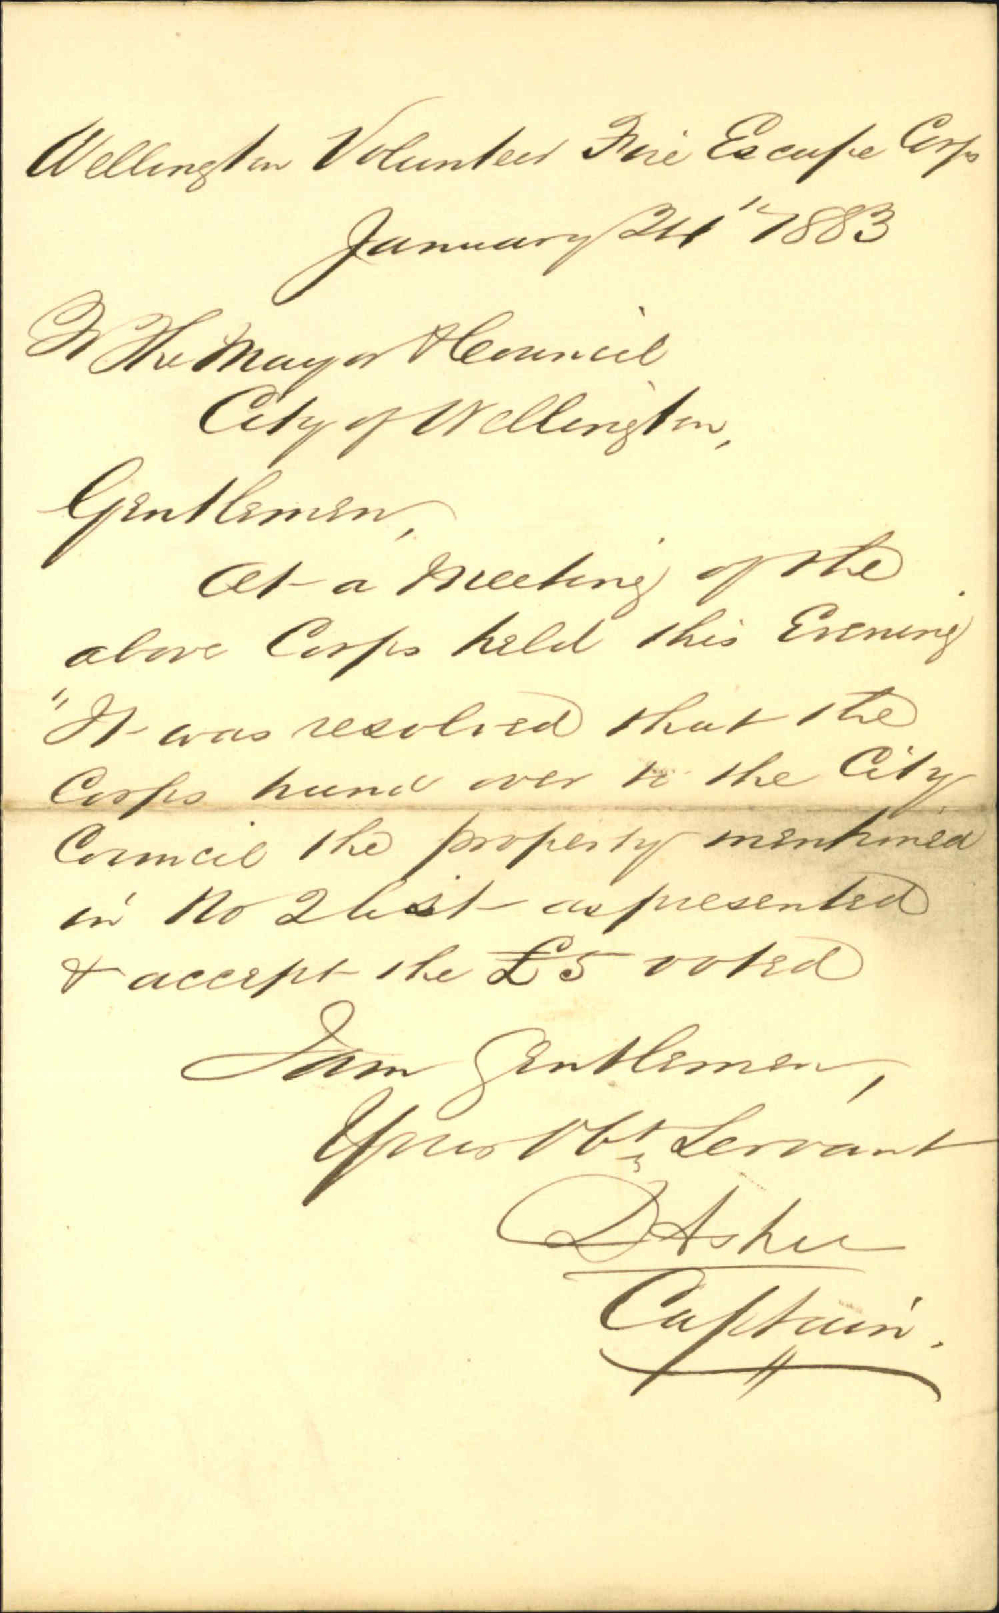 Wellington Volunteer Fire Escape Corps
January 24th 1883
To The Mayor & Council
City of Wellington,
Gentlemen,
At a Meeting of the
above Corps held this Evening
"It was resolved that the
Corps hand over to the City
Council the property mentioned
in No 2 list as presented
& accept the £5 voted
I am Gentlemen,
Your Obt Servant
D Asher
Captain.